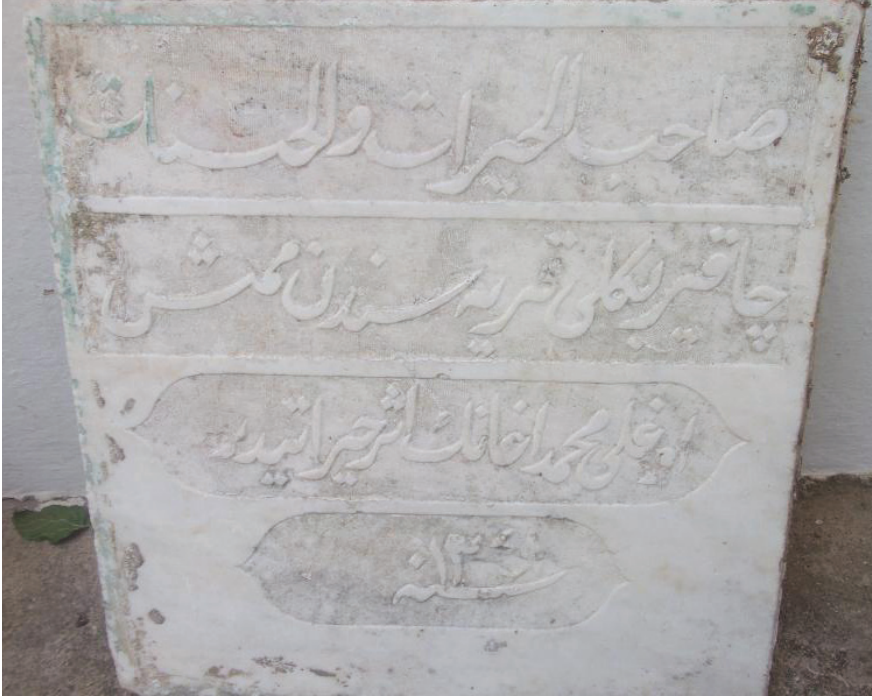 صاحب الخيرات والحسنات
چاقير بكلی قريه سندن ممش
اوغلی محمد اغانك اثر خيراتيدر
سنه